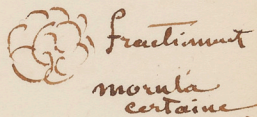 fractionnent
morula
certaine